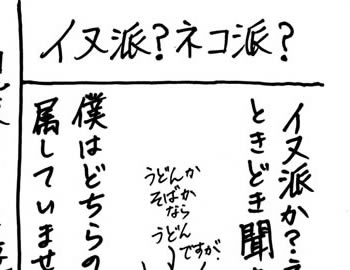 イヌ派?ネコ派?
イヌ派か?ネ
ときどき聞か
うどんか
そばか
なら
うどん
ですが、
僕はどちらの
属していませ